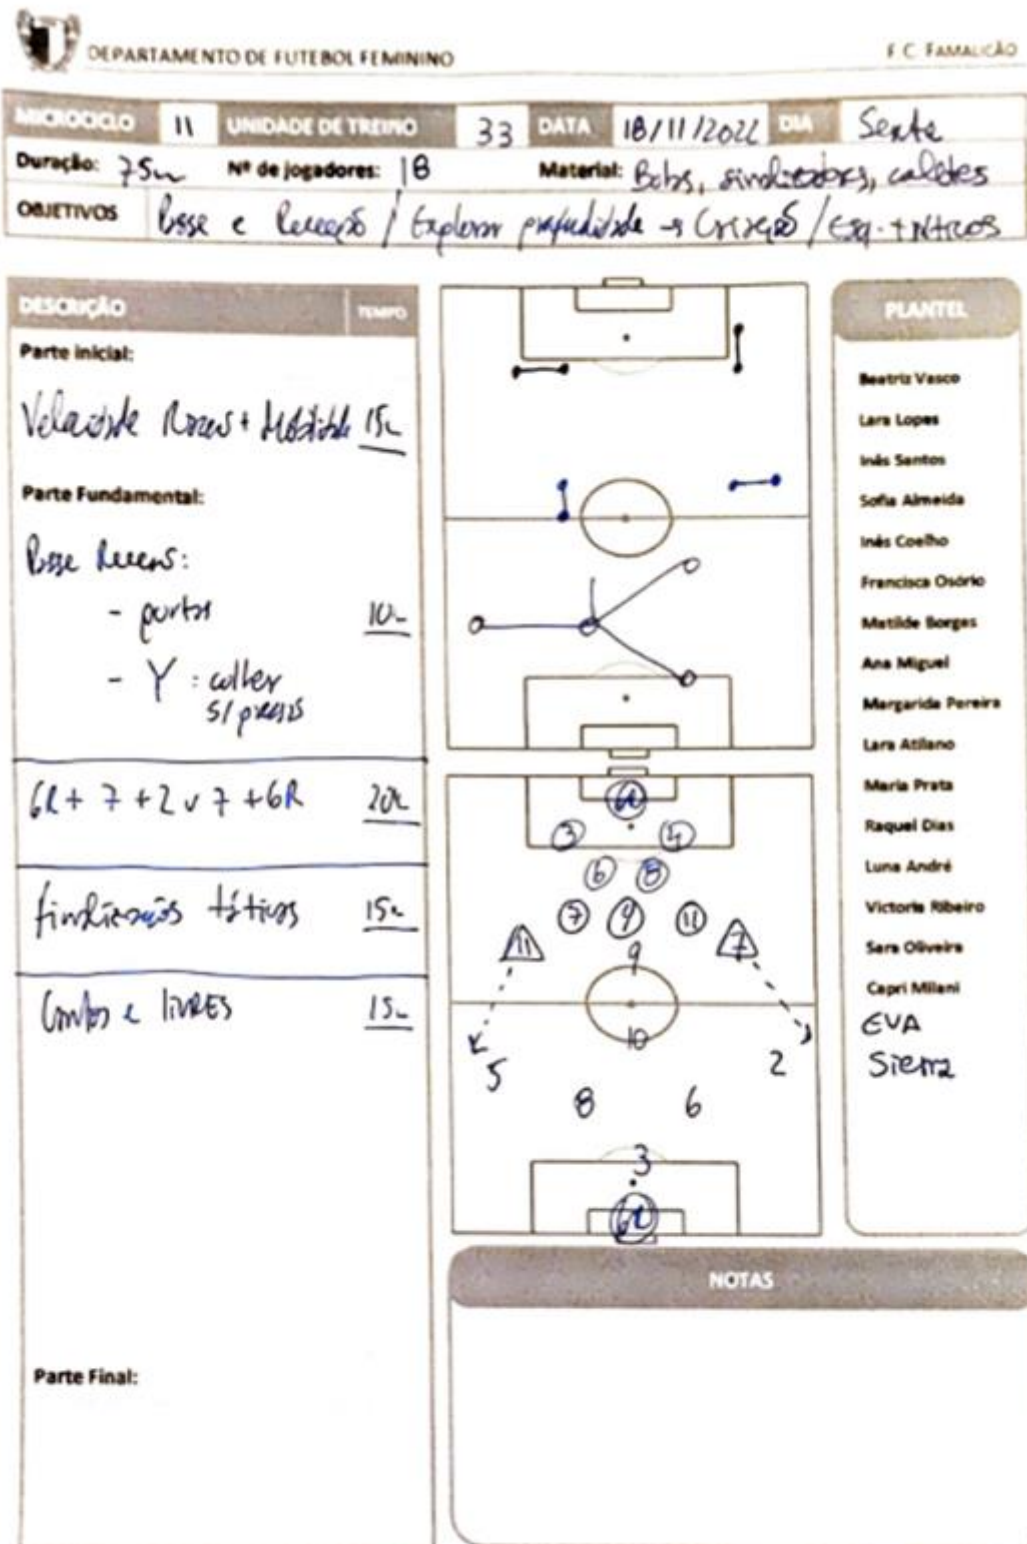 DEPARTAMENTO DE FUTEBOL FEMININO
F. C. FAMALICÃO
MICROCICLO 11 UNIDADE DE TREINO 33 DATA 18/11/2022 DIA Sexta
Duração: 75m Nº de jogadores: 18 Material: Bolas, sinalizadores, coletes
OBJETIVOS Passe e Receção / Explorar profundidade → Criação / Esq. táticos
DESCRIÇÃO TEMPO
Parte inicial:
Velocidade + 15m
Parte Fundamental:
Passe :
- portas 10m
- Y :
s/ pressão
GR + 7 + 2 v 7 + GR 20m
finalizações táticas 15m
Cantos e LIVRES 15m
Parte Final:
GR
3 4
6 8
7 9 11
11 7
9
10
5 2
8 6
3
GR
PLANTEL
Beatriz Vasco
Lara Lopes
Inês Santos
Sofia Almeida
Inês Coelho
Francisca Osório
Matilde Borges
Ana Miguel
Margarida Pereira
Lara Atilano
Maria Prata
Raquel Dias
Luna André
Victoria Ribeiro
Sara Oliveira
Capri Milani
EVA
Sierra
NOTAS